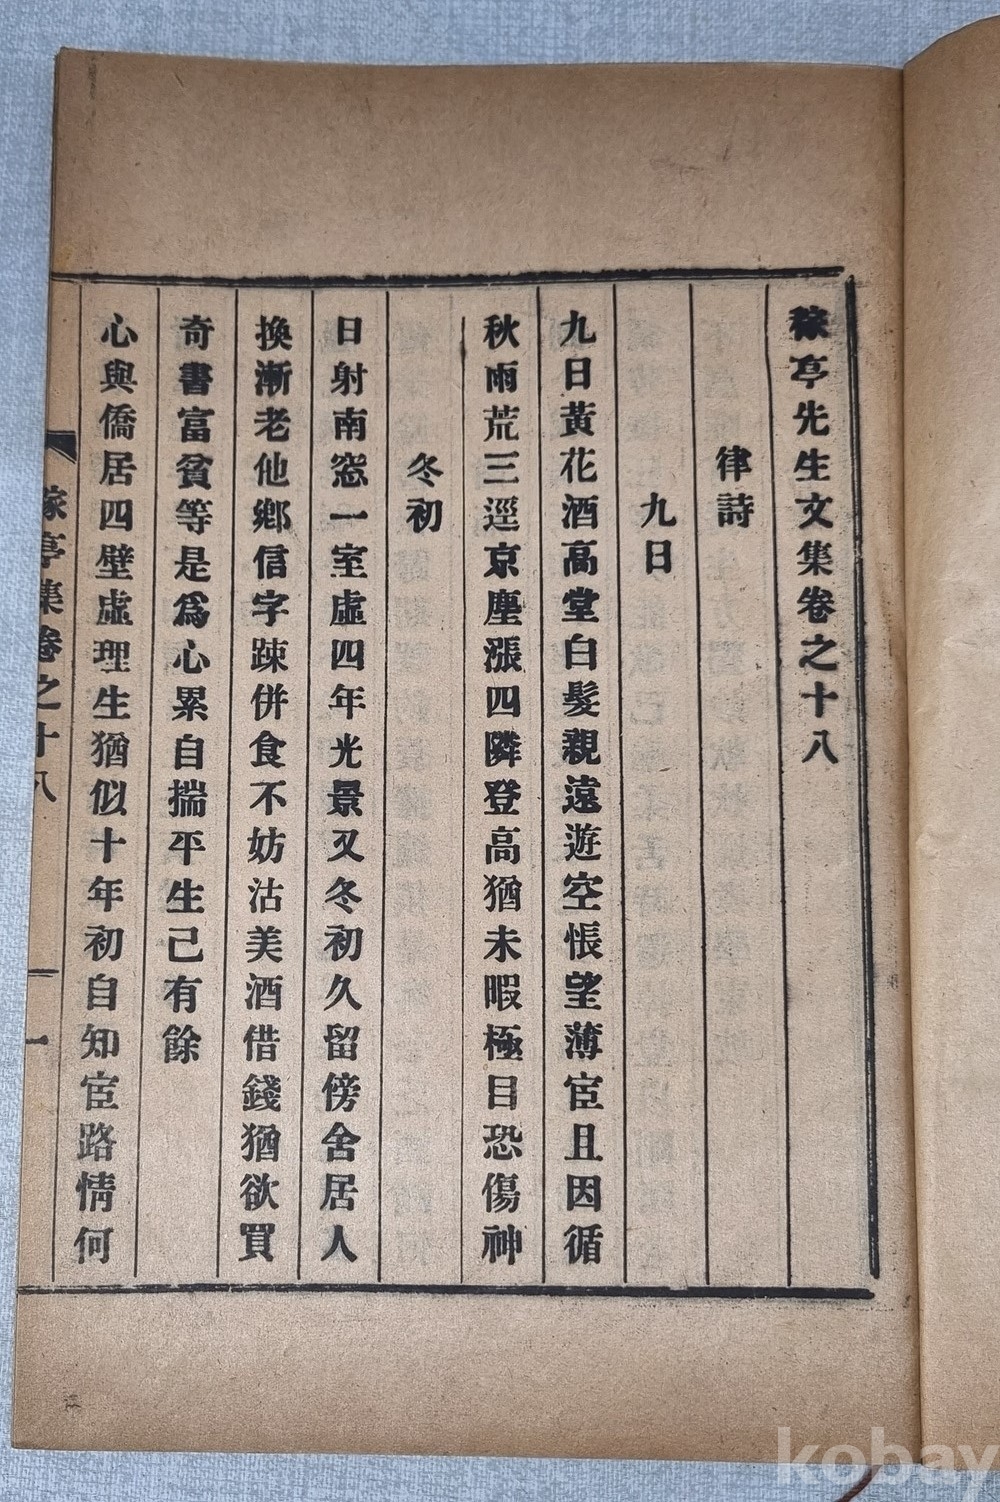 稼亭先生文集卷之十八
律詩
九日
九日黃花酒高堂白髮親遠遊空悵望薄宦且因循
秋雨荒三逕京塵漲四隣登高猶未暇極目恐傷神
冬初
日射南窓一室虛四年光景又冬初久留傍舍居人
換漸老他鄕信字踈併食不妨沽美酒借錢猶欲買
奇書富貧等是爲心累自揣平生己有餘
心與僑居四壁虛理生猶似十年初自知宦路情何
稼亭集卷之十八
一
kobay